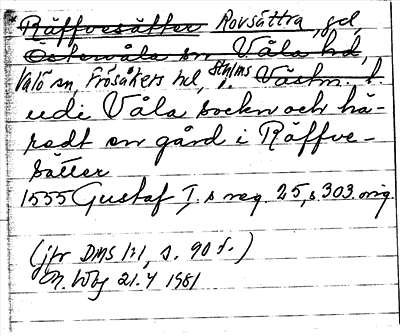 Räffvesätter Rovsättra, gd,
Östervåla sn Våla hd,
Valö sn, Frösåkers hd, Sthlms Västm. l.
udi Våla sockn och hä-
radt en gård i Räffve-
sätter
1555 Gustaf I.s reg. 25, s. 303. orig.
(jfr DMS 1:1, s. 90 f.)
21.4 1981